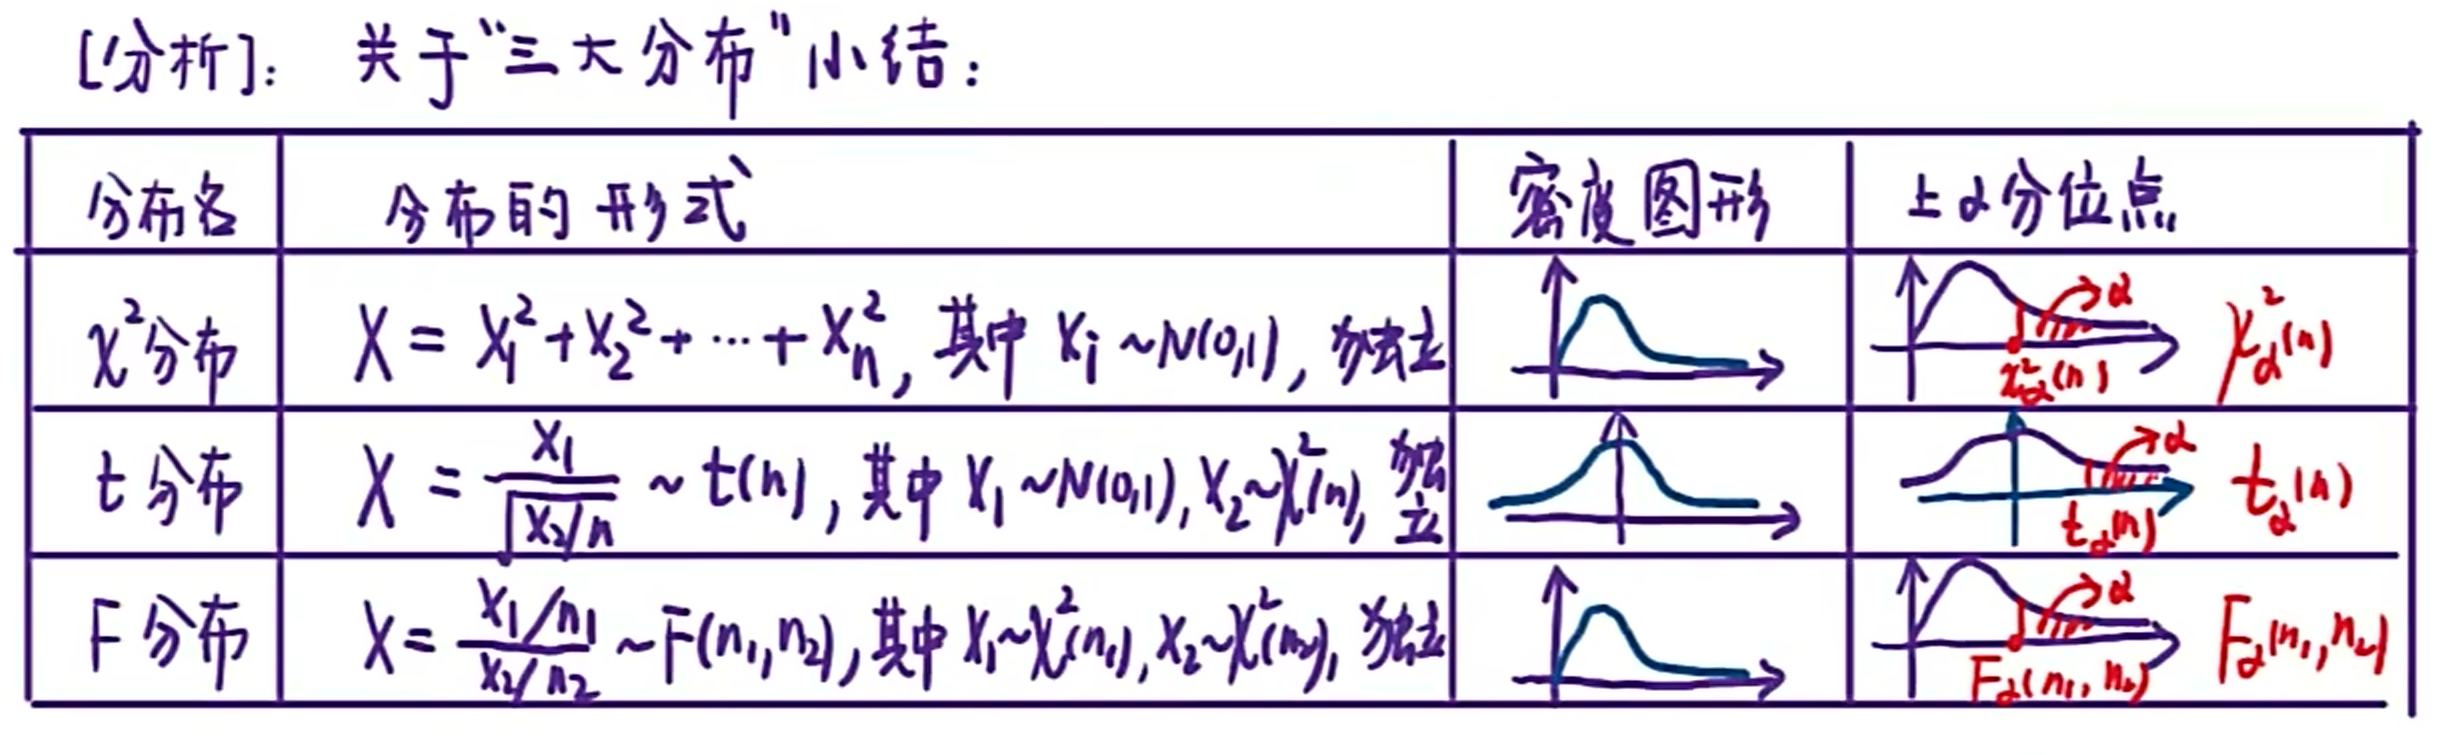 [分析]: 关于“三大分布”小结:
分布名 分布的形式 密度图形 上α分位点
χ²分布 X = X₁² + X₂² + ⋯ + Xₙ², 其中 Xᵢ ~ N(0,1), 独立 α χ²_α(n) χ²_α(n)
t 分布 X = X₁/√(X₂/n) ~ t(n), 其中 X₁ ~ N(0,1), X₂ ~ χ²(n), 独立 α t_α(n) t_α(n)
F 分布 X = (X₁/n₁)/(X₂/n₂) ~ F(n₁,n₂), 其中 X₁ ~ χ²(n₁), X₂ ~ χ²(n₂), 独立 α F_α(n₁,n₂) F_α(n₁,n₂)